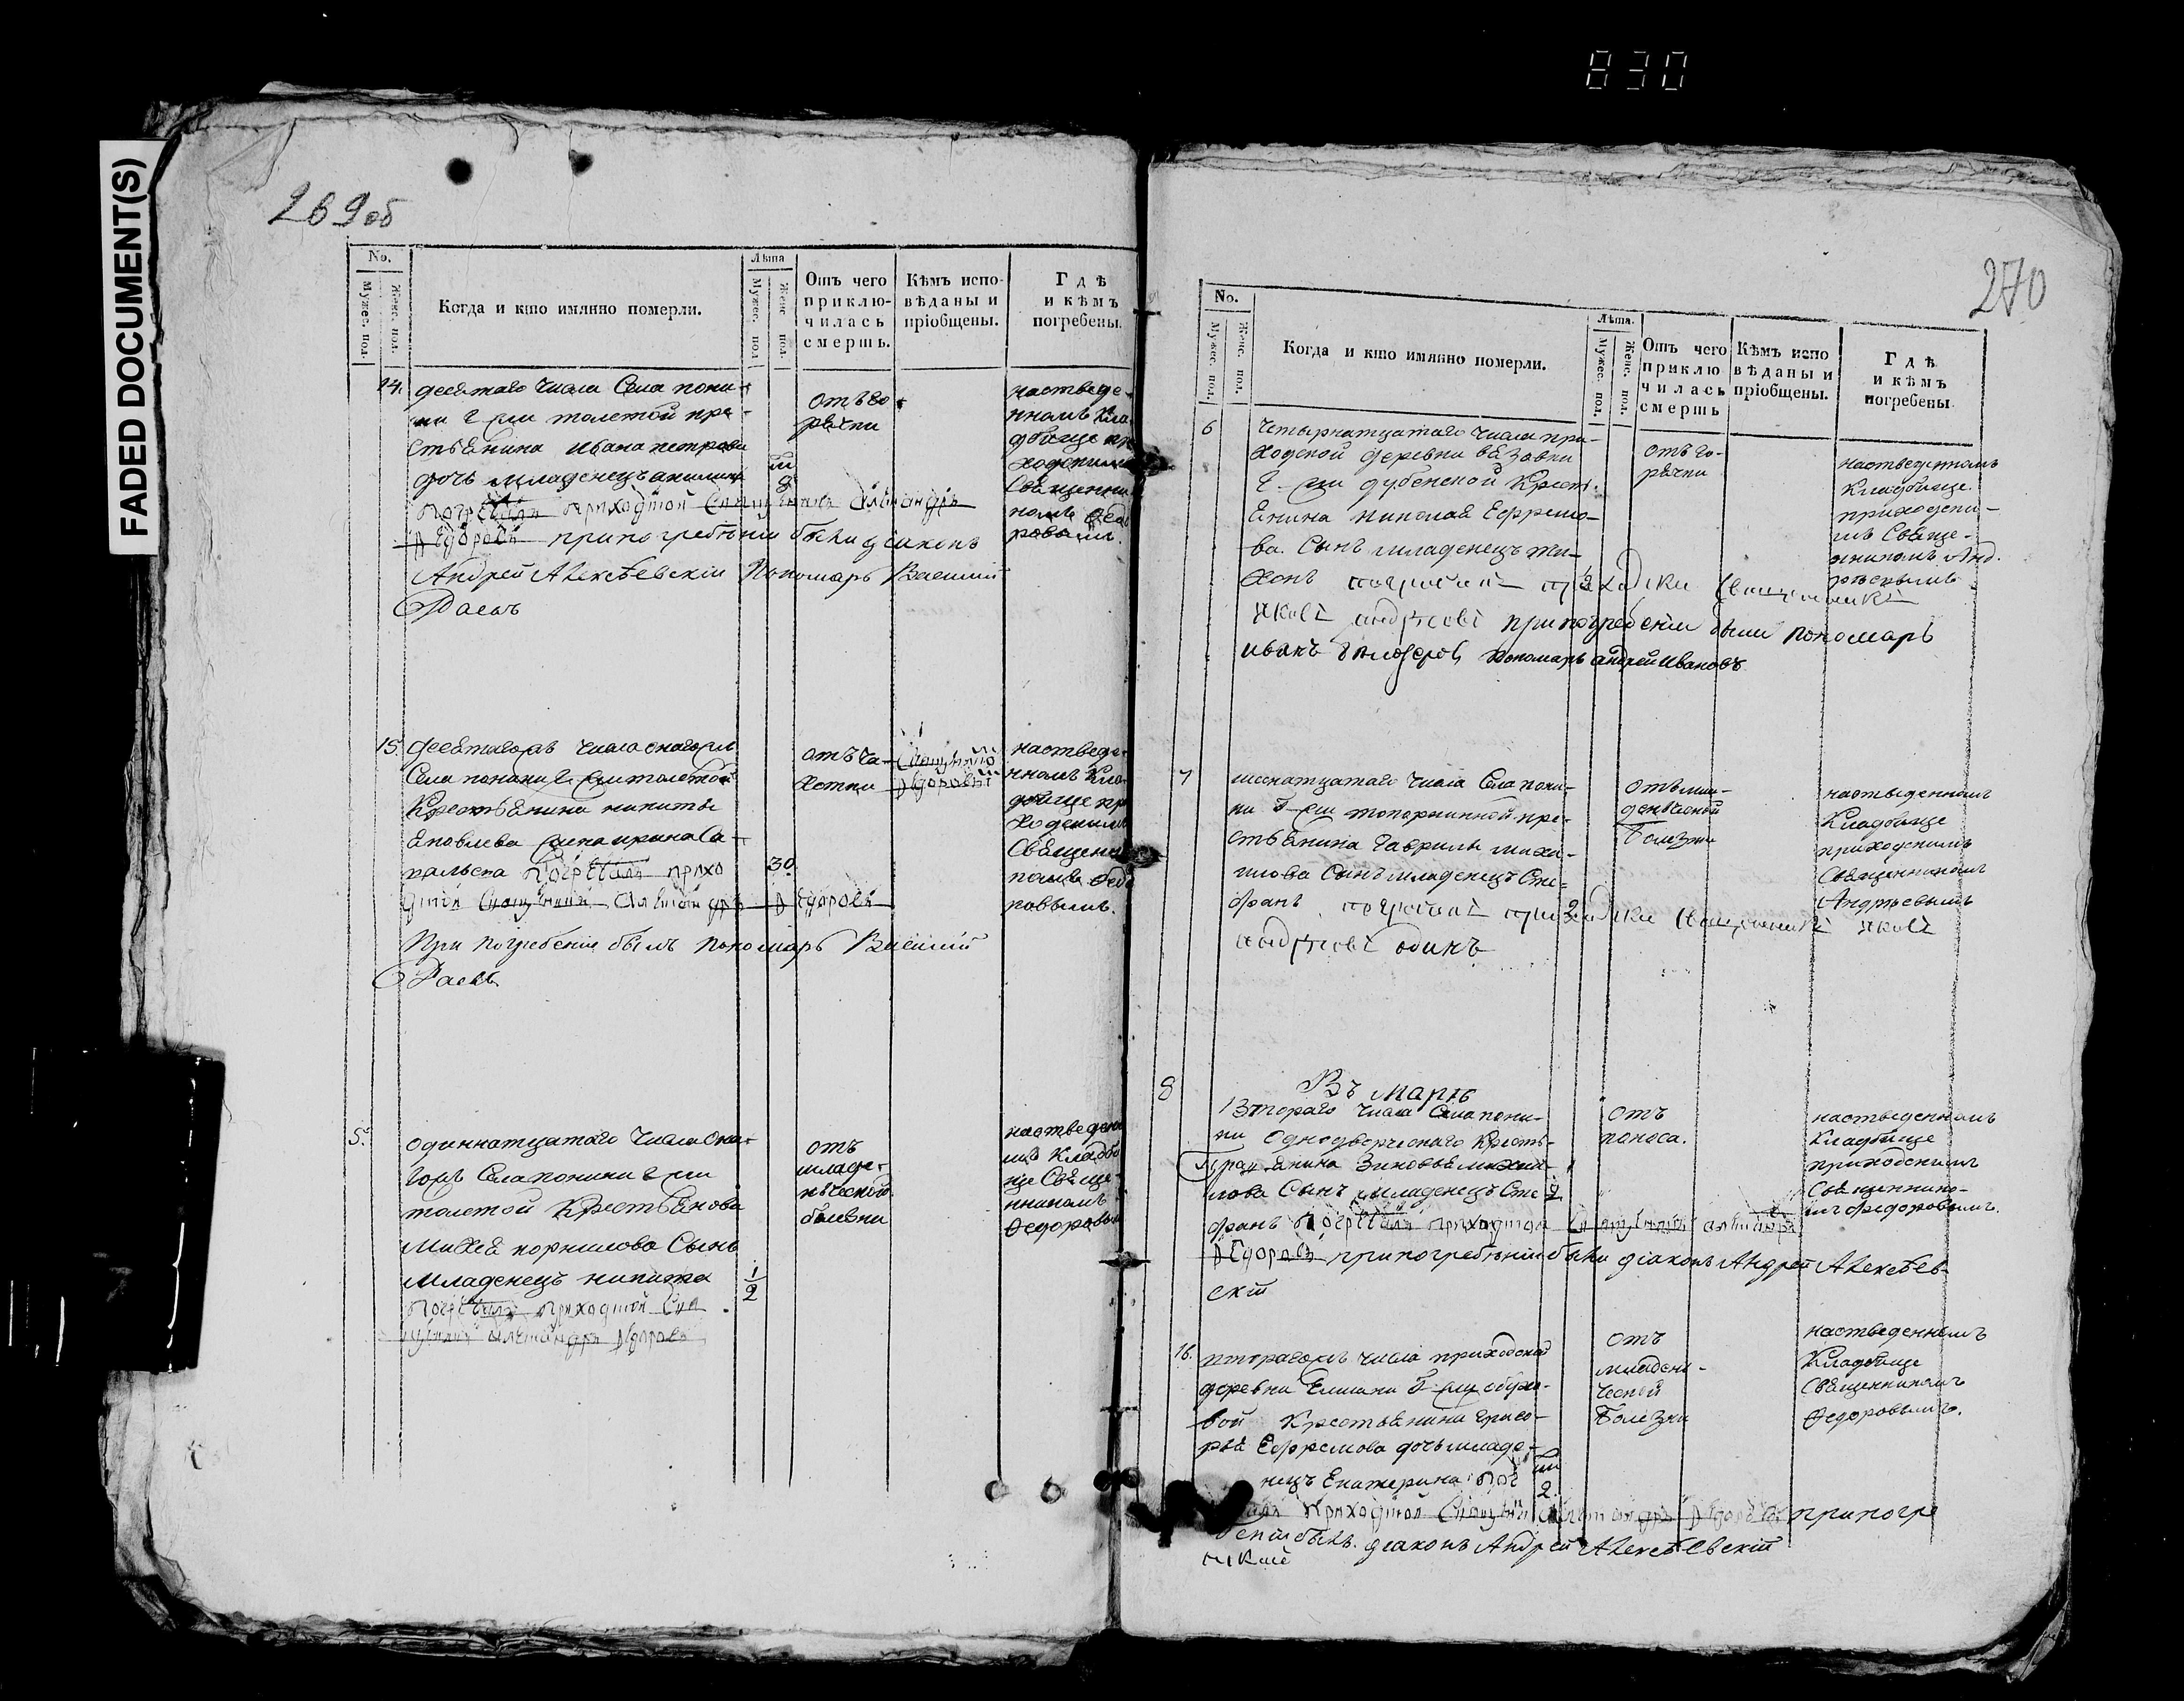 830
FADED DOCUMENT(S)
269об
No.
Мужес. пол.
Женс. пол.
Когда и кто имянно померли.
Лѣта
Мужес. пол
Женс пол.
Отъ чего приклю-
чилась смерть.
Кѣмъ испо-
вѣданы и
пріобщены.
Гдѣ
и кѣмъ
погребены.
14.
десятаго числа Села пони-
ки г жи толстой кре-
стьянина Ивана петрова
дочь младенецъ акилина
погребалъ приходской Священникъ Александръ
Федоровъ при погребении были диаконъ
Андрей Алексѣевскіи Пономарь Василий
8
отъ го-
рячки
на отведе-
нномъ кла-
дбище пр
ходскимъ
Священни
комъ Федо
ровымъ.
15.
десятагожъ числа онагожъ
Села поники г жи толстой
Крестьянина никиты
Яковлева жена ирина
погребалъ прихо
дской Священникъ Александръ Федоровъ
При погребении былъ пономарь Василий
30
отъ ча-
хотки
Священно
Федоровъ
на отведе-
нномъ кла-
дбище пр
ходскимъ
Священ
комъ Федо
ровымъ.
5.
одиннатцатаго числа
Села поники г жи
толстой Крестьянова
Михея корнилова Сынъ
Младенецъ никита
погребалъ приходской Свя
щенникъ Александръ Федоровъ
1/2
отъ
младе-
нческой
болезни
на отведен
мъ кладби
ще Свяще-
нникомъ
Федоровым
270
No.
Мужес. пол.
Женс. пол.
Когда и кто имянно померли.
Лѣта.
Мужес. пол.
Женс. пол.
Отъ чего
приклю
чилась
смерть
Кѣмъ испо
вѣданы и
пріобщены.
Гдѣ
и кѣмъ
погребены
6
Четырнатцатаго числа при-
ходской деревни вязовки
г-жи дубенской Крест-
янина николая Ефремо-
ва. Сынъ младенецъ ти-
хонъ погребалъ приходски Священникъ
яковъ андреевъ при погребении были пономарь
иванъ пономарь андрей Ивановъ
2
отъ го-
рячки
на отведенномъ
кладбище
приходски-
мъ Свяще-
нникомъ Анд-
реевымъ
7
шеснатцатаго числа Села пони-
ки г-жи топорниной кре-
стьянина Гаврилы миха-
илова Сынъ младенецъ Сте-
фанъ погребалъ приходски Священникъ яковъ
андреевъ одинъ
2
отъ мла-
денческой
болезни
на отведенномъ
кладбище
приходскимъ
Священникомъ
Андреевымъ
Въ мартѣ
8
Втораго числа Села пони-
ки Однодворческаго Кресть-
янина Зиновья михаи-
лова Сынъ младенецъ Сте
фанъ погребалъ приходской Священникъ александръ
Федоровъ при погребении были диаконъ Андрей Алексѣев-
скіи
1/2
отъ
поноса.
на отведенномъ
кладбище
приходскимъ
Священнико-
мъ Федоровымъ.
16.
втораго жъ числа приходской
деревни г жи обухо-
вой Крестьянина григо-
рья Ефремова дочь младе-
нецъ Екатерина
приходской Священникъ Александръ Федоровъ при погре
бении былъ. диаконъ Андрей Алексѣевскіи
2
отъ
младен-
ческой
болезни
на отведенномъ
кладбище
Священникомъ
Федоровымъ.